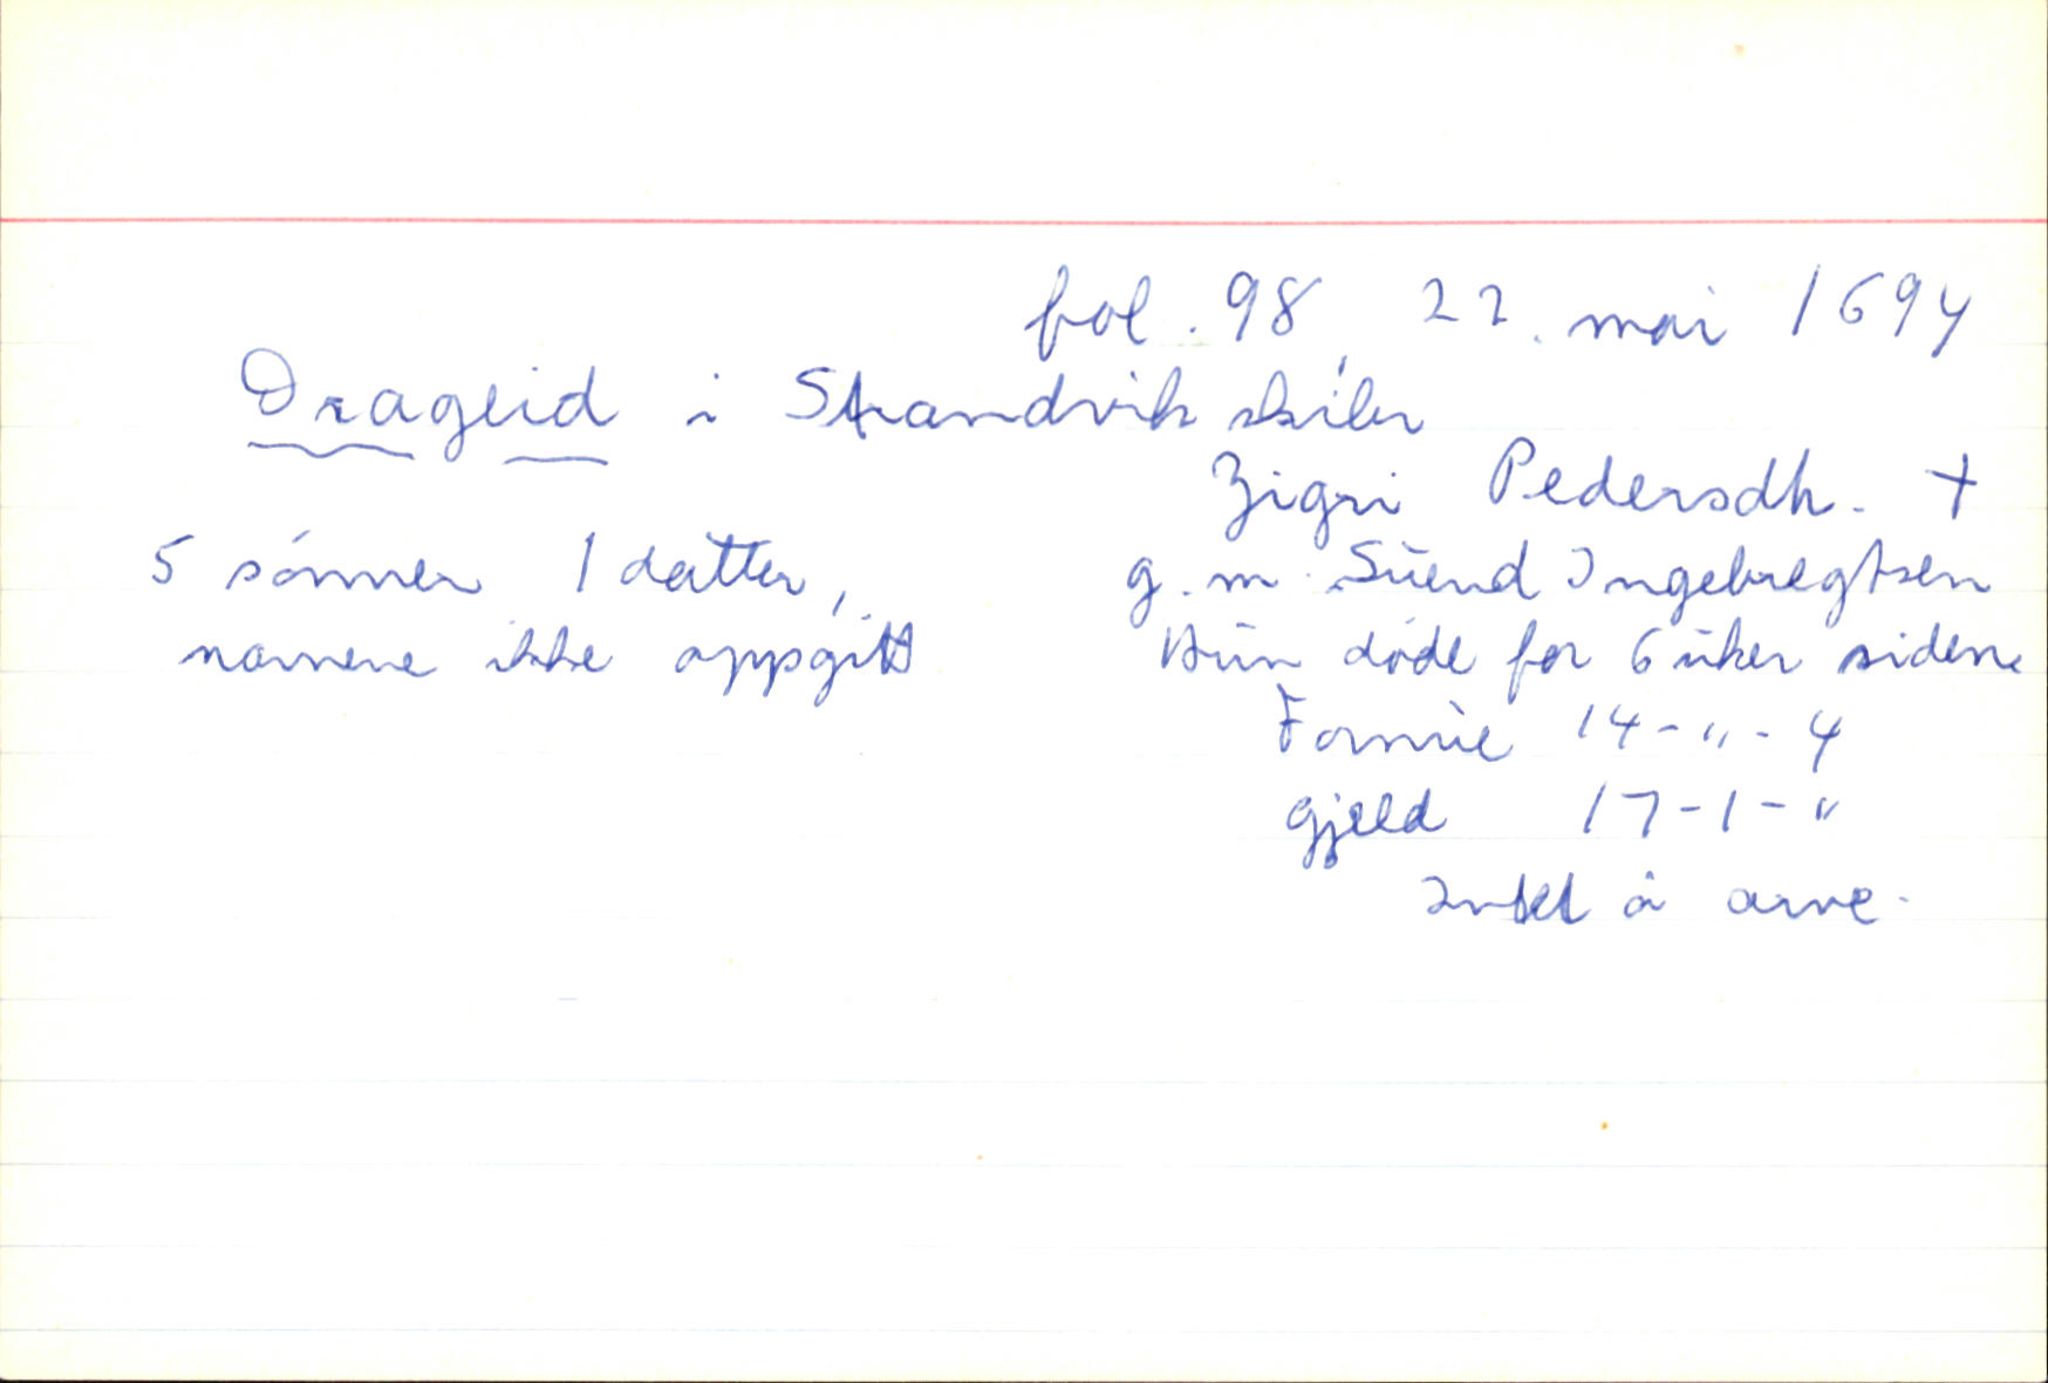 fol. 98, 22. mai 1694
Drageid i Strandvik skibr
Zigri Pedersdtr. †
5 sønner 1 datter, g. m. Suend Ingebregtsen
navnene ikke oppgitt Hun døde for 6 uker siden.
Formue 14-"-4
gjeld 17-1-"
Intet å arve.